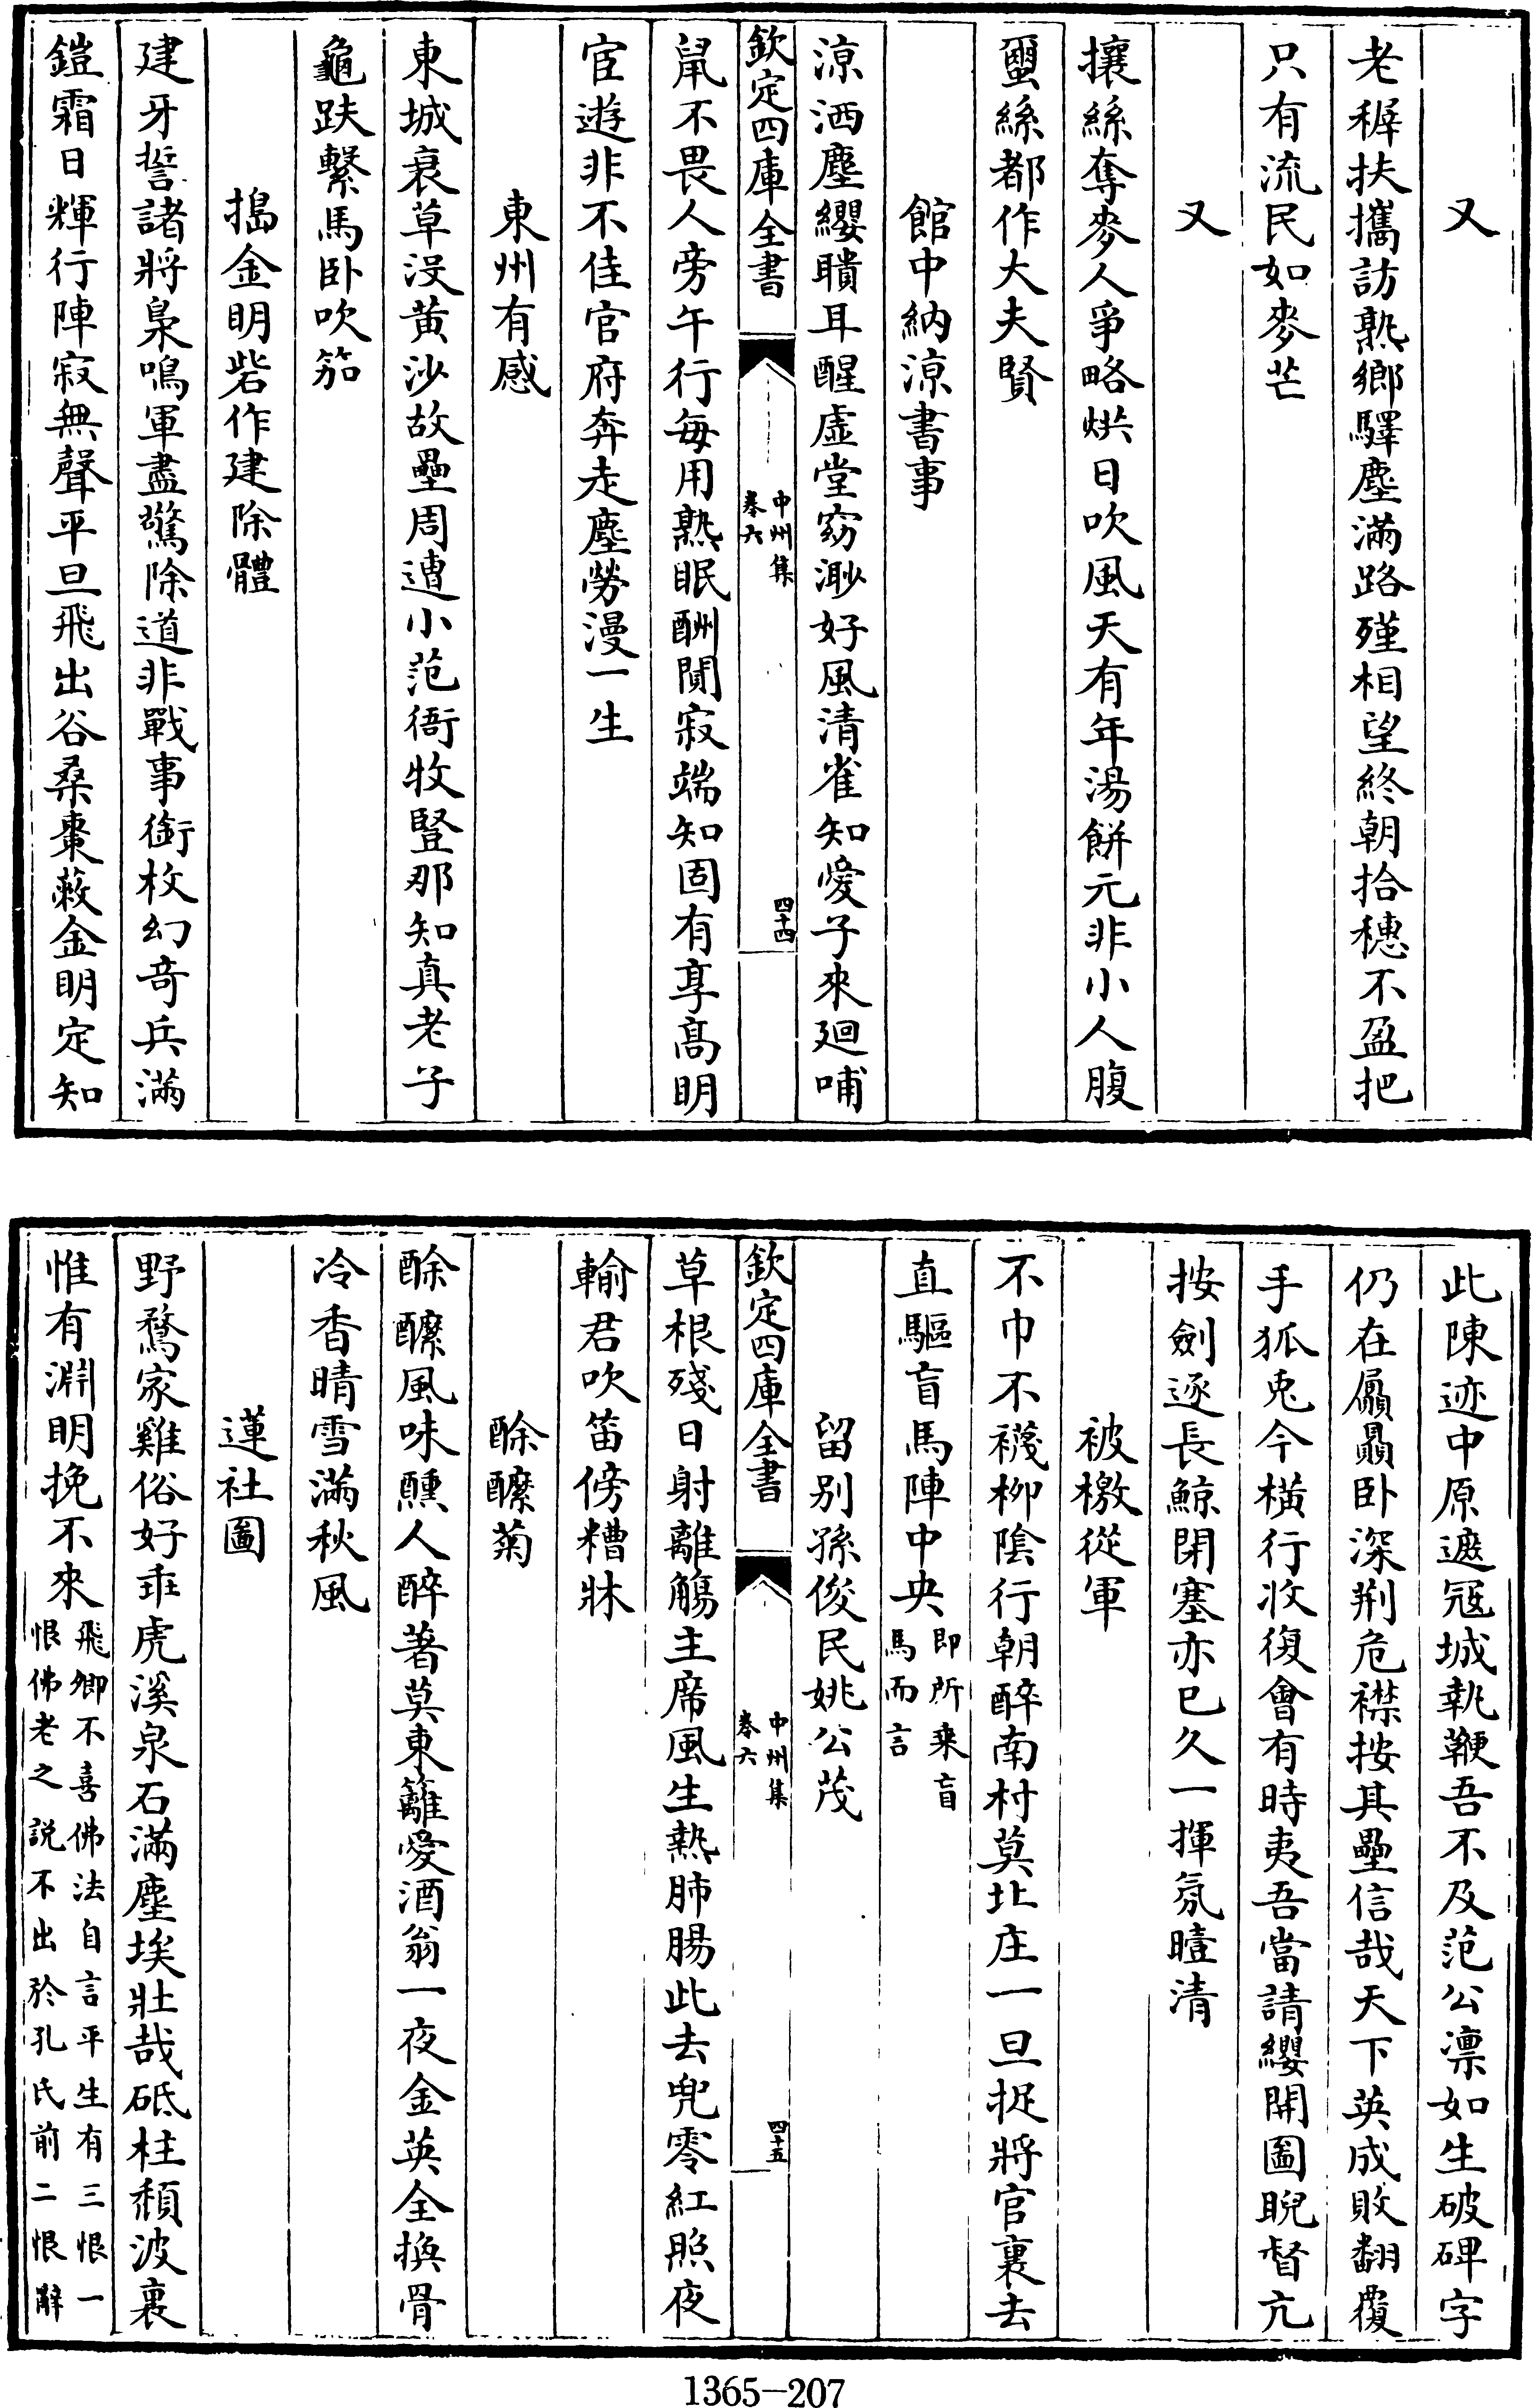 又
老稺扶攜訪熟鄉驛塵滿路殣相望終朝拾穗不盈把
只有流民如麥芒
又
攘絲奪麥人爭略烘日吹風天有年湯餅元非小人腹
蠒絲都作大夫賢
館中納涼書事
涼洒塵纓聵耳醒虛堂窈渺好風清雀知愛子來廻哺
欽定四庫全書
中州集
卷六
四十四
鼠不畏人旁午行每用熟眠酬閴寂端知固有享髙明
宦遊非不佳官府奔走塵勞漫一生
東州有感
東城衰草沒黄沙故壘周遭小范衙牧豎那知真老子
龜趺繫馬卧吹笳
搗金明砦作建除體
建牙誓諸將梟鳴軍盡驚除道非戰事銜枚幻竒兵滿
鎧霜日輝行陣寂無聲平旦飛出谷桑棗蔽金明定知
此陳迹中原遮冦城執鞭吾不及范公凛如生破碑字
仍在屭贔卧深荆危襟按其壘信哉天下英成敗翻覆
手狐兎今橫行收復會有時夷吾當請纓開圖睨督亢
按劍逐長鯨閉塞亦已久一揮氛曀清
被檄從軍
不巾不襪柳陰行朝醉南村莫北庄一旦捉將官裏去
直驅盲馬陣中央即所乗盲
馬而言
留别孫俊民姚公茂
欽定四庫全書
中州集
卷六
四十五
草根殘日射離觴主席風生熱肺腸此去兜零紅照夜
輸君吹笛傍糟牀
酴醿菊
酴醿風味醺人醉著莫東籬愛酒翁一夜金英全換骨
冷香晴雪滿秋風
蓮社圖
野鶩家雞俗好乖虎溪泉石滿塵埃壯哉砥柱頹波裏
惟有淵明挽不來飛卿不喜佛法自言平生有三恨一
恨佛老之説不出於孔氏前二恨辭
1365-207